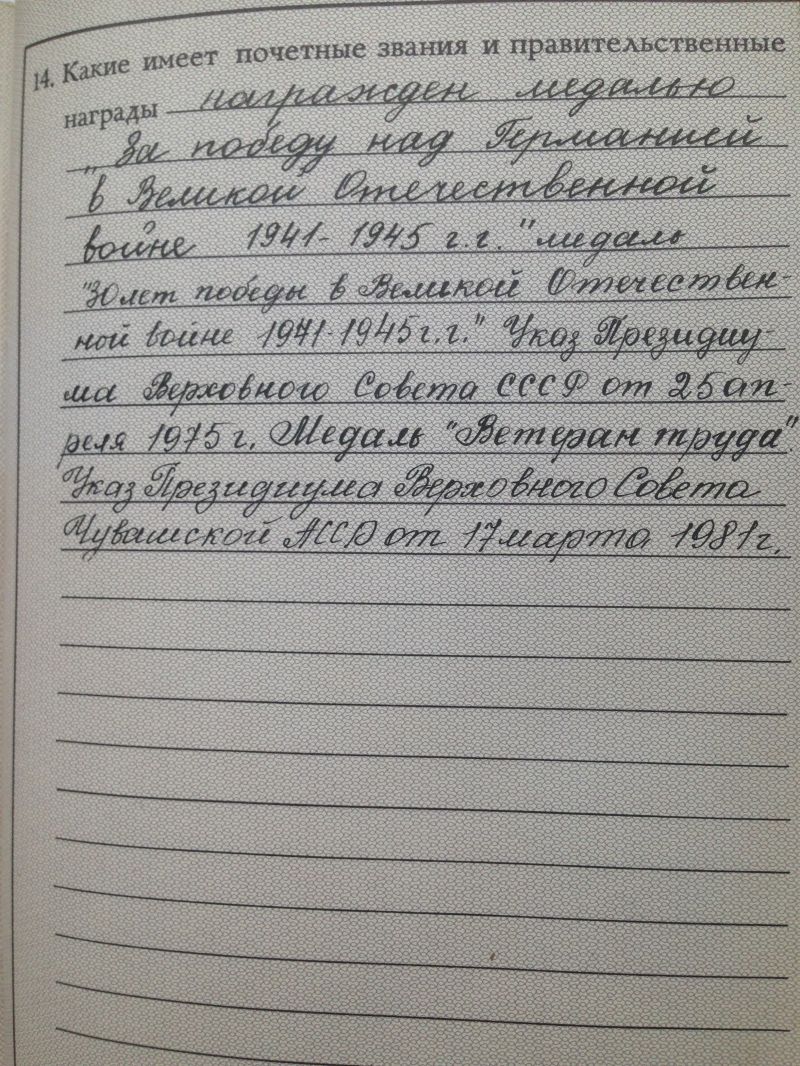 14. Какие имеет почетные звания и правительственные
награды награжден медалью
„За победу над Германией
в Великой Отечественной
войне 1941-1945 г.г." медаль
"30 лет победы в Великой Отечествен-
ной войне 1941-1945 г.г." Указ Президиу-
ма Верховного Совета СССР от 25 ап-
реля 1975 г. Медаль "Ветеран труда".
Указ Президиума Верховного Совета
Чувашской АССР от 17 марта 1981 г.